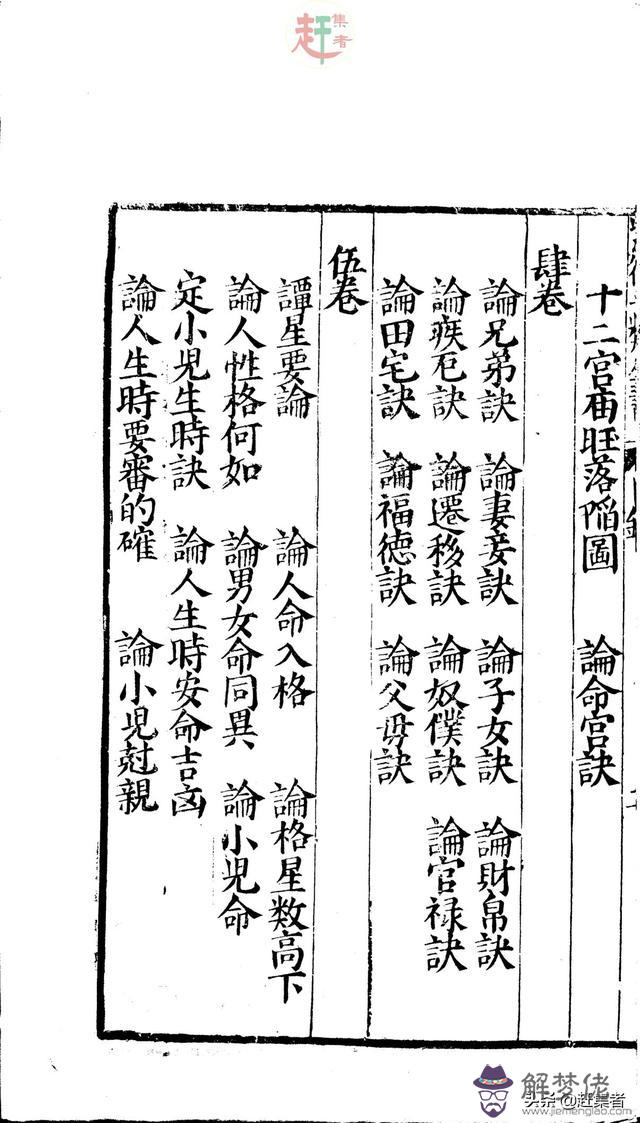 赶集者
十二宫庙旺落陷圖 論命宫訣
肆卷
論兄弟訣 論妻妾訣 論子女訣 論財帛訣
論疾厄訣 論遷移訣 論奴僕訣 論官禄訣
論田宅訣 論福德訣 論父母訣
伍卷
譚星要論 論人命入格 論格星数高下
論人性格何如 論男女命同異 論小児命
定小児生時訣 論人生時安命吉凶
論人生時要審的確 論小児尅親
解梦佬
头条@赶集者
www.jiemenglao.com